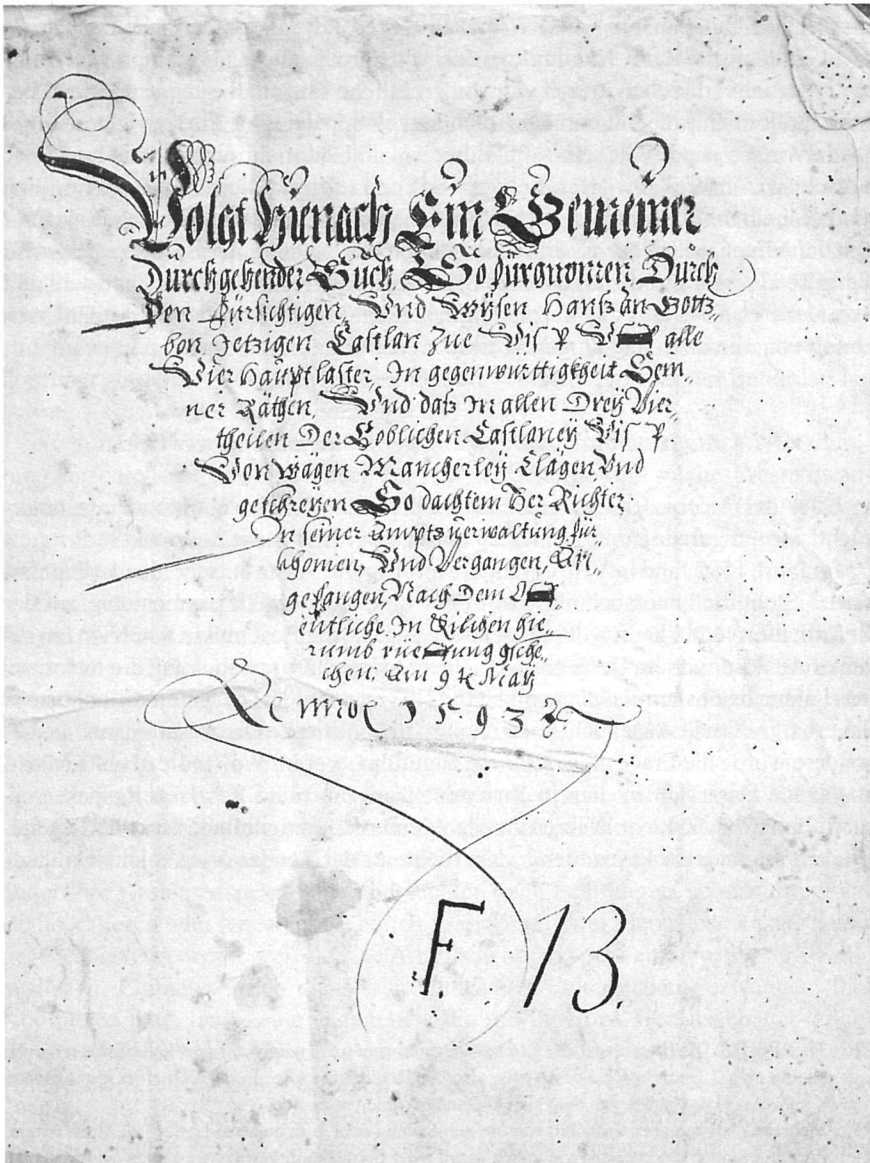 Volgt Hienach Ein Gemeiner
Durchgehender Such, So fürgnomen, Durch
Den fürsichtigen, Und Wysen Hanß an Gottß,
bon Jetzigen Castlan Zue Visp alle
Vier Hauptlaster, In gegenwürttigkheit Sem
ner Räthen, Und daß In allen Drey Vier,,
theilen Der Loblichen Castlaney Visp
Von wägen Mancherley Clägen Und
geschreyen So dachtem Her Richter
In seiner Ampts verwaltung für
khomen, Und Vergangen, An,,
gefangen, Nach Dem
entliche In Kilchen hie,,
rumb gsche,,
chen: Am 9 t May
Anno 1593
F. 13.